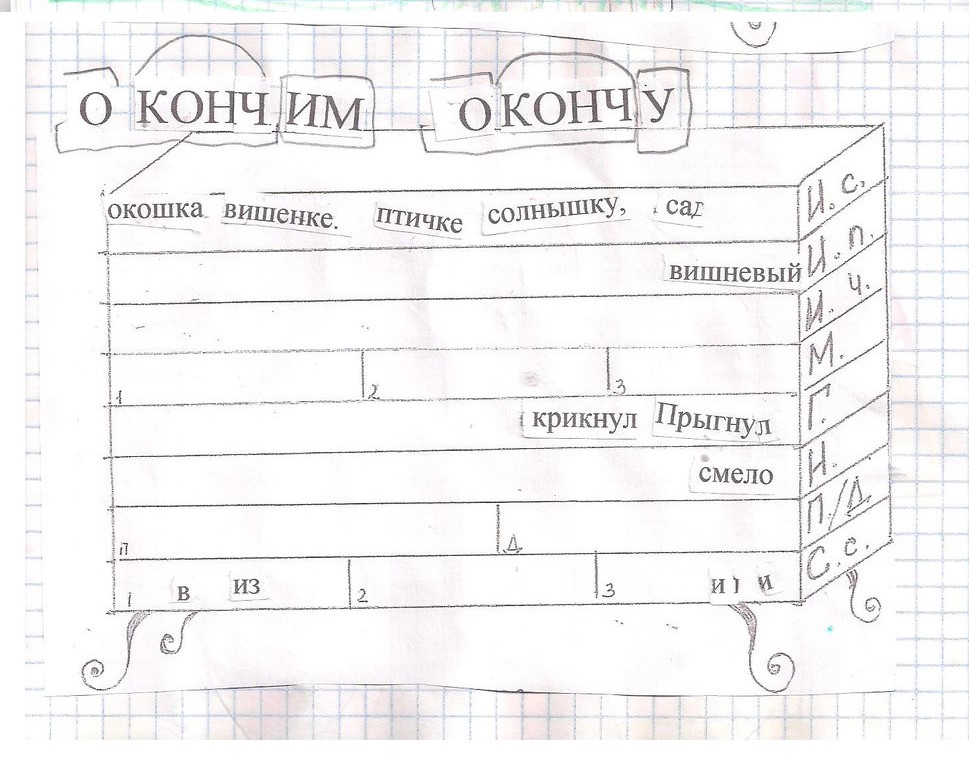 ОКОНЧИМ ОКОНЧУ
окошка вишенке. птичке солнышку, сад И. с.
вишневый И. п.
И. ч.
1 2 3 М.
крикнул Прыгнул Г.
смело Н.
П Д П/Д
1 в из 2 3 и и С. с.